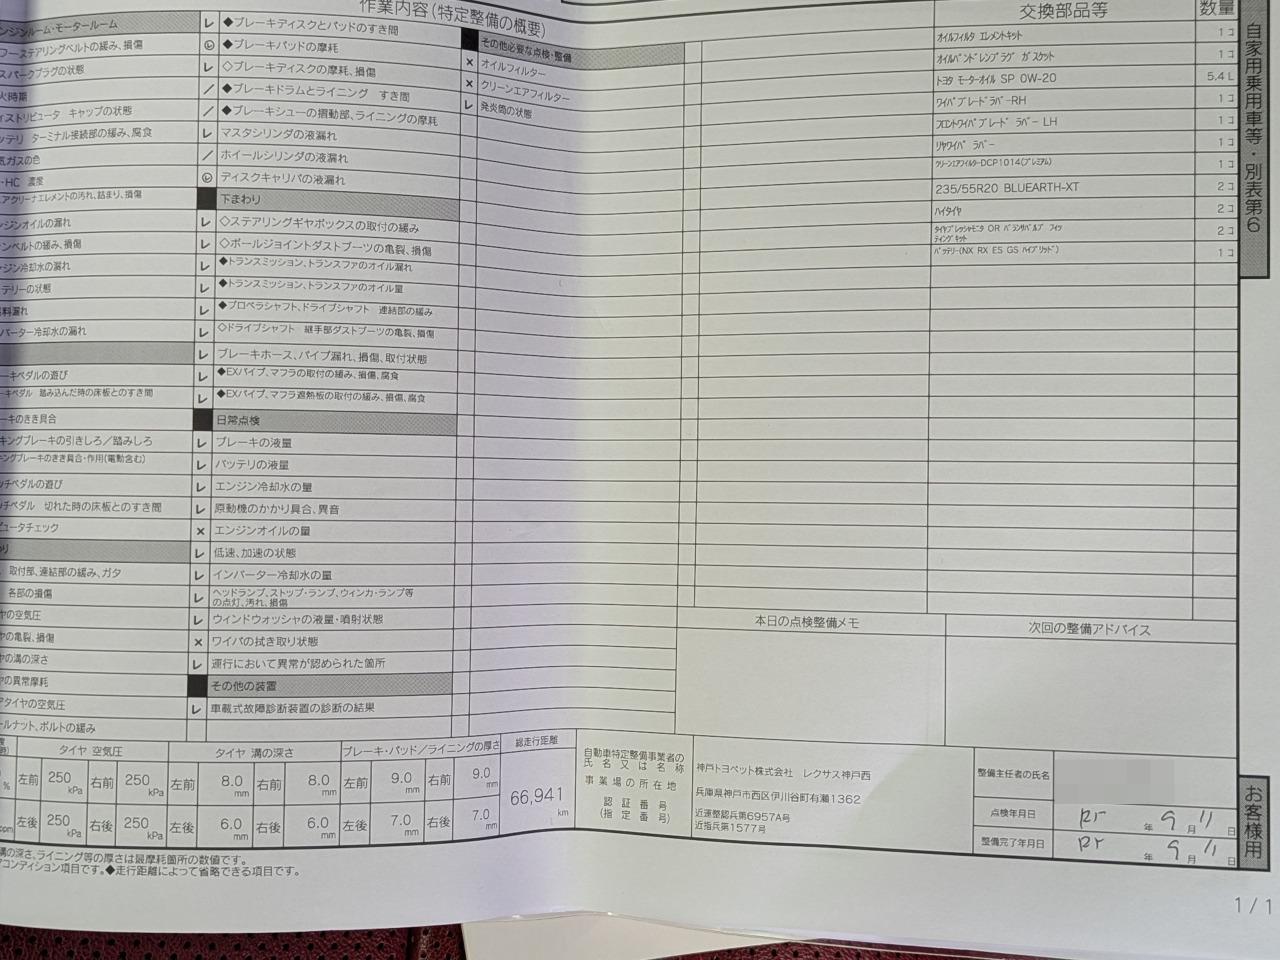 作業内容(特定整備の概要)
ンジンルーム・モータールーム
ワーステアリングベルトの緩み、損傷
スパークプラグの状態
火時期
ィストリビュータ キャップの状態
ッテリ ターミナル接続部の緩み、腐食
気ガスの色
・HC 濃度
エアクリーナエレメントの汚れ、詰まり、損傷
ンジンオイルの漏れ
ンベルトの緩み、損傷
ジン冷却水の漏れ
テリーの状態
料漏れ
バーター冷却水の漏れ
ーキペダルの遊び
ーキペダル 踏み込んだ時の床板とのすき間
ーキのきき具合
キングブレーキの引きしろ/踏みしろ
ングブレーキのきき具合・作用(電動含む)
ッチペダルの遊び
チペダル 切れた時の床板とのすき間
ピュータチェック
り
取付部、連結部の緩み、ガタ
各部の損傷
ヤの空気圧
ヤの亀裂、損傷
ヤの溝の深さ
ヤの異常摩耗
アタイヤの空気圧
ールナット、ボルトの緩み
レ ◆ブレーキディスクとパッドのすき間
◆ブレーキパッドの摩耗
レ ◇ブレーキディスクの摩耗、損傷
/ ◆ブレーキドラムとライニング すき間
/ ◆ブレーキシューの摺動部、ライニングの摩耗
レ マスタシリンダの液漏れ
/ ホイールシリンダの液漏れ
ディスクキャリパの液漏れ
下まわり
レ ◇ステアリングギヤボックスの取付の緩み
レ ◇ボールジョイントダストブーツの亀裂、損傷
レ ◆トランスミッション、トランスファのオイル漏れ
レ ◆トランスミッション、トランスファのオイル量
レ ◆プロペラシャフト、ドライブシャフト 連結部の緩み
レ ◇ドライブシャフト 継手部ダストブーツの亀裂、損傷
レ ブレーキホース、パイプ漏れ、損傷、取付状態
レ ◆EXパイプ、マフラの取付の緩み、損傷、腐食
レ ◆EXパイプ、マフラ遮熱板の取付の緩み、損傷、腐食
日常点検
レ ブレーキの液量
レ バッテリの液量
レ エンジン冷却水の量
レ 原動機のかかり具合、異音
× エンジンオイルの量
レ 低速、加速の状態
レ インバーター冷却水の量
レ ヘッドランプ、ストップ・ランプ、ウィンカ・ランプ等
の点灯、汚れ、損傷
レ ウィンドウォッシャの液量・噴射状態
× ワイパの拭き取り状態
レ 運行において異常が認められた箇所
その他の装置
レ 車載式故障診断装置の診断の結果
その他必要な点検・整備
× オイルフィルター
× クリーンエアフィルター
レ 発炎筒の状態
交換部品等 数量
オイルフィルタ エレメントキット 1コ
オイルパンドレンプラグ ガスケット 1コ
トヨタ モーターオイル SP 0W-20 5.4L
ワイパブレードラバーRH 1コ
フロントワイパブレード ラバーLH 1コ
リヤワイパ ラバー 1コ
クリーンエアフィルターDCP1014(プレミアム) 1コ
235/55R20 BLUEARTH-XT 2コ
ハイタイヤ 2コ
タイヤプレッシャモニタ OR バランサバルブ フィッ
ティングキット 2コ
バッテリー(NX RX ES GS ハイブリッド) 1コ
自家用乗用車等・別表第6
本日の点検整備メモ
次回の整備アドバイス
タイヤ 空気圧
左前 250 kPa 右前 250 kPa
左後 250 kPa 右後 250 kPa
タイヤ 溝の深さ
左前 8.0 mm 右前 8.0 mm
左後 6.0 mm 右後 6.0 mm
ブレーキ・パッド/ライニングの厚さ
左前 9.0 mm 右前 9.0 mm
左後 7.0 mm 右後 7.0 mm
%
ppm
総走行距離
66,941 km
自動車特定整備事業者の
氏名又は名称
事業場の所在地
認証番号
(指定番号)
神戸トヨペット株式会社 レクサス神戸西
兵庫県神戸市西区伊川谷町有瀬1362
近運整認兵第6957A号
近指兵第1577号
整備主任者の氏名
点検年月日 年 9 月 11 日
整備完了年月日 年 9 月 11 日
お客様用
溝の深さ、ライニング等の厚さは最摩耗箇所の数値です。
コンディション項目です。◆走行距離によって省略できる項目です。
1/1